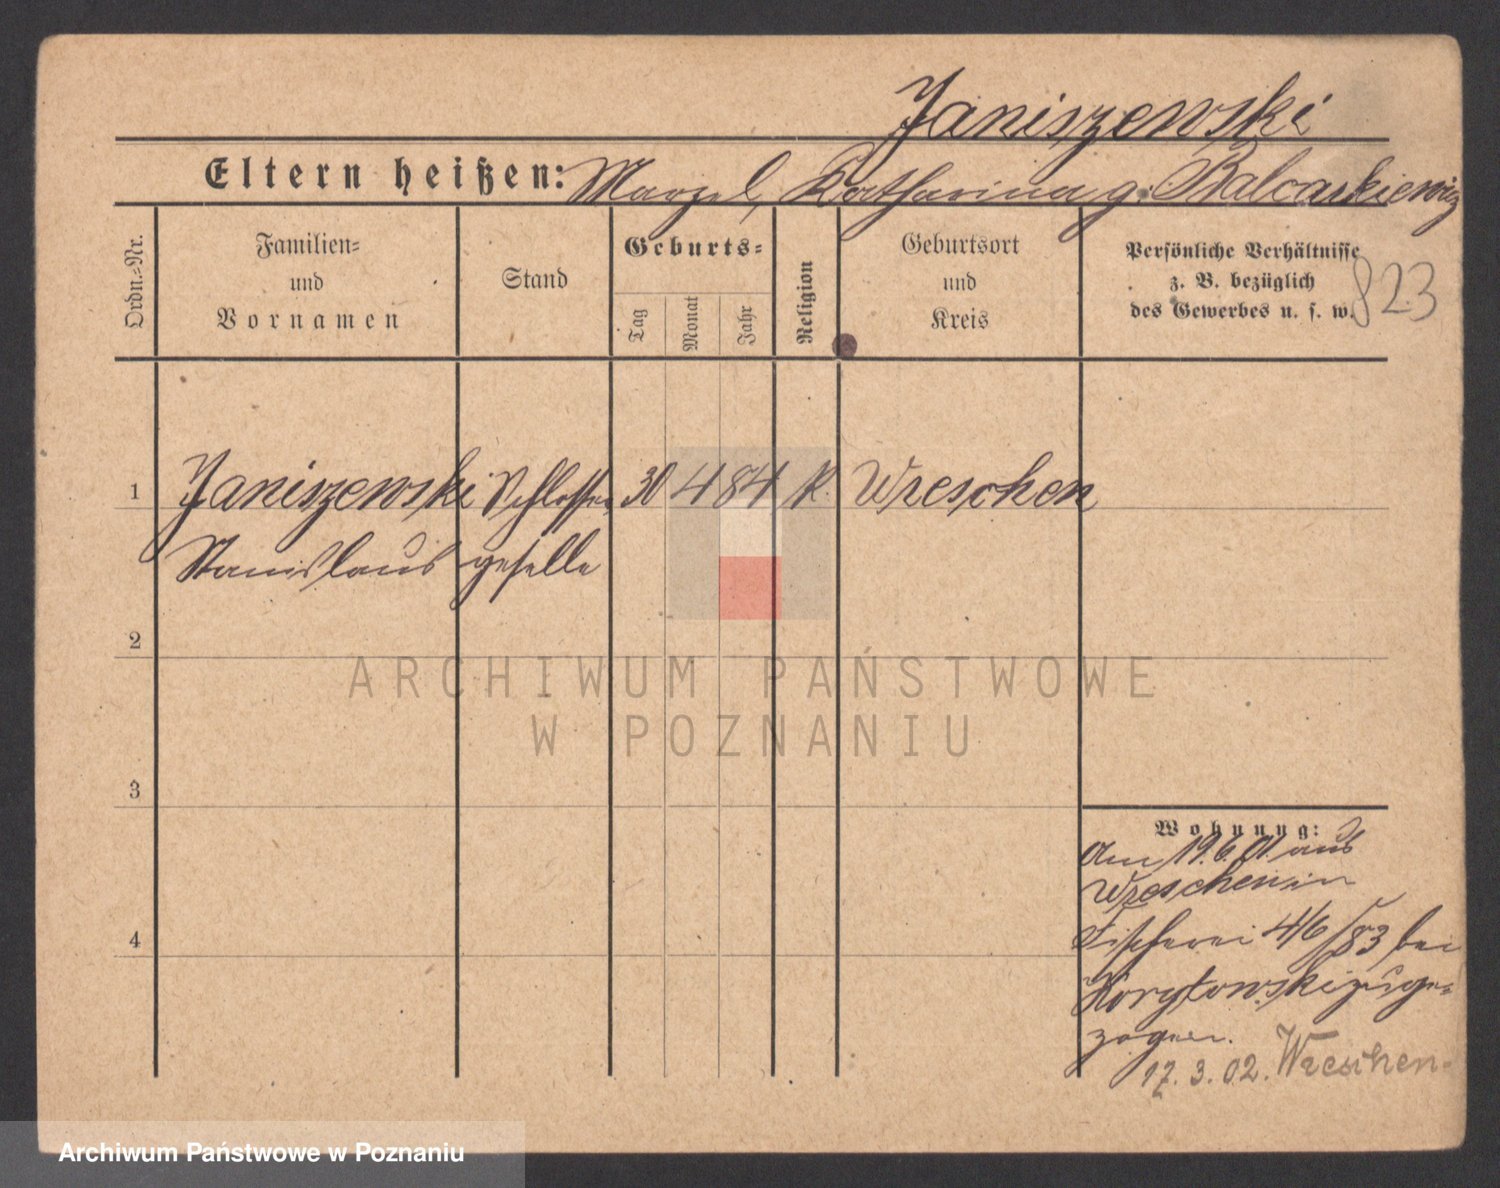 Janiszewski
Eltern heißen: Marzel, Katharina g. Balcarkiewicz
Ordn.-Nr.
Familien-
und
Vornamen
Stand
Geburts-
Tag
Monat
Jahr
Religion
Geburtsort
und
Kreis
Persönliche Verhältnisse
z. B. bezüglich
des Gewerbes u. s. w.
823
1 Janiszewski Schlosser 30 4 84 k. Wreschen
Stanislaus geselle
2
3
4
Wohnung:
Am 19.6.01. aus
Wreschen in
Fischerei 4/6 /83 bei
Korytowski zuge-
zogen.
17. 3. 02. Wreschen.
ARCHIWUM PAŃSTWOWE
W POZNANIU
Archiwum Państwowe w Poznaniu